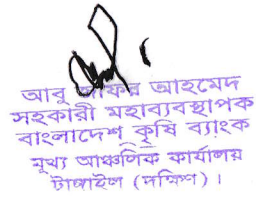 আবু জাফর আহমেদ
সহকারী মহাব্যবস্থাপক
বাংলাদেশ কৃষি ব্যাংক
মুখ্য আঞ্চলিক কার্যালয়
টাঙ্গাইল (দক্ষিণ) ।